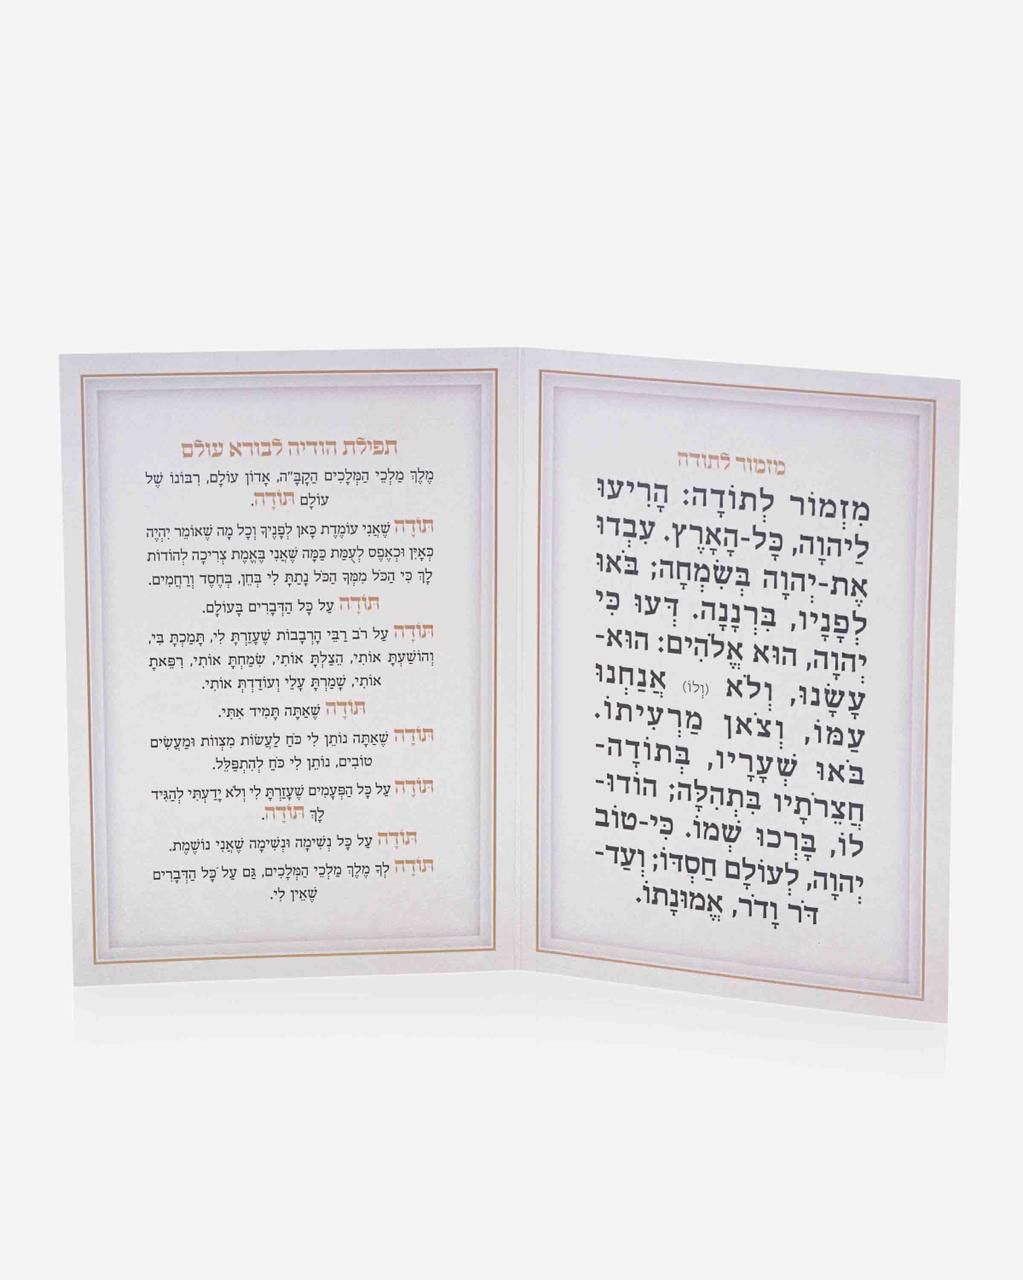 מזמור לתודה
מִזְמוֹר לְתוֹדָה: הָרִיעוּ
לַיהוָה, כָּל-הָאָרֶץ. עִבְדוּ
אֶת-יְהוָה בְּשִׂמְחָה; בֹּאוּ
לְפָנָיו, בִּרְנָנָה. דְּעוּ כִּי
יְהוָה, הוּא אֱלֹהִים: הוּא-
עָשָׂנוּ, וְלֹא (וְלוֹ) אֲנַחְנוּ
עַמּוֹ, וְצֹאן מַרְעִיתוֹ.
בֹּאוּ שְׁעָרָיו, בְּתוֹדָה-
חֲצֵרֹתָיו בִּתְהִלָּה; הוֹדוּ-
לוֹ, בָּרְכוּ שְׁמוֹ. כִּי-טוֹב
יְהוָה, לְעוֹלָם חַסְדּוֹ; וְעַד-
דֹּר וָדֹר, אֱמוּנָתוֹ.
תפילת הודיה לבורא עולם
מֶלֶךְ מַלְכֵי הַמְּלָכִים הַקָבָּ"ה, אָדוֹן עוֹלָם, רִבּוֹנוֹ שֶׁל
עוֹלָם תּוֹדָה.
תּוֹדָה שֶׁאֲנִי עוֹמֶדֶת כָּאן לְפָנֶיךָ וְכָל מָה שֶׁאוֹמַר יִהְיֶה
כְּאַיִן וּכְאֶפֶס לְעֻמַּת כַּמָּה שֶׁאֲנִי בֶּאֱמֶת צְרִיכָה לְהוֹדוֹת
לָךְ כִּי הַכֹּל מִמְּךָ הַכֹּל נָתַתָּ לִי בְּחֵן, בְּחֶסֶד וְרַחֲמִים.
תּוֹדָה עַל כָּל הַדְּבָרִים בָּעוֹלָם.
תּוֹדָה עַל רֹב רַבֵּי הָרְבָבוֹת שֶׁעָזַרְתָּ לִי, תָּמַכְתָּ בִּי,
וְהוֹשַׁעְתָּ אוֹתִי, הִצַּלְתָּ אוֹתִי, שִׂמַּחְתָּ אוֹתִי, רִפֵּאתָ
אוֹתִי, שָׁמַרְתָּ עָלַי וְעוֹדַדְתָּ אוֹתִי.
תּוֹדָה שֶׁאַתָּה תָּמִיד אִתִּי.
תּוֹדָה שֶׁאַתָּה נוֹתֵן לִי כֹּחַ לַעֲשׂוֹת מִצְווֹת וּמַעֲשִׂים
טוֹבִים, נוֹתֵן לִי כֹּחַ לְהִתְפַּלֵּל.
תּוֹדָה עַל כָּל הַפְּעָמִים שֶׁעָזַרְתָּ לִי וְלֹא יָדַעְתִּי לְהַגִּיד
לָךְ תּוֹדָה.
תּוֹדָה עַל כָּל נְשִׁימָה וּנְשִׁימָה שֶׁאֲנִי נוֹשֶׁמֶת.
תּוֹדָה לְךָ מֶלֶךְ מַלְכֵי הַמְּלָכִים, גַּם עַל כָּל הַדְּבָרִים
שֶׁאֵין לִי.